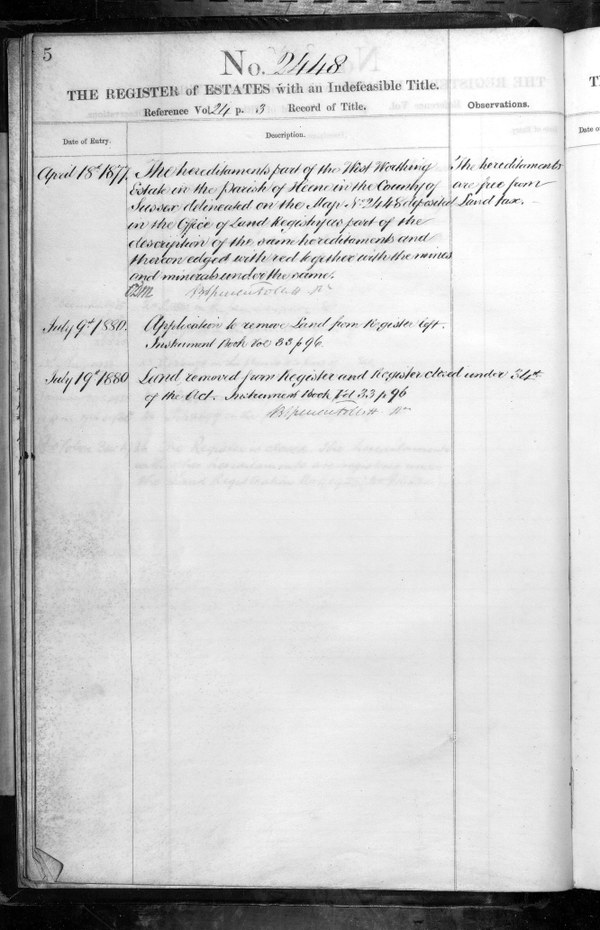 5
No. 2448
THE REGISTER of ESTATES with an Indefeasible Title.
Reference Vol. 24 p. 3 Record of Title.
Observations.
Date of Entry.
Description.
April 18th 1877.
The hereditaments part of the West Worthing
Estate in the Parish of Heene in the County of
Sussex delineated on the Map No. 2448 deposited
in the Office of Land Registry as part of the
description of the same hereditaments and
thereon edged with red together with the mines
and minerals under the same.
The hereditaments
are free from
Land tax.
July 9th 1880.
Application to remove Land from Register left.
Instrument Book Vol 33 p 96
July 19th 1880
Land removed from Register and Register closed under 34th
of the Act. Instrument Book Vol 33 p 96